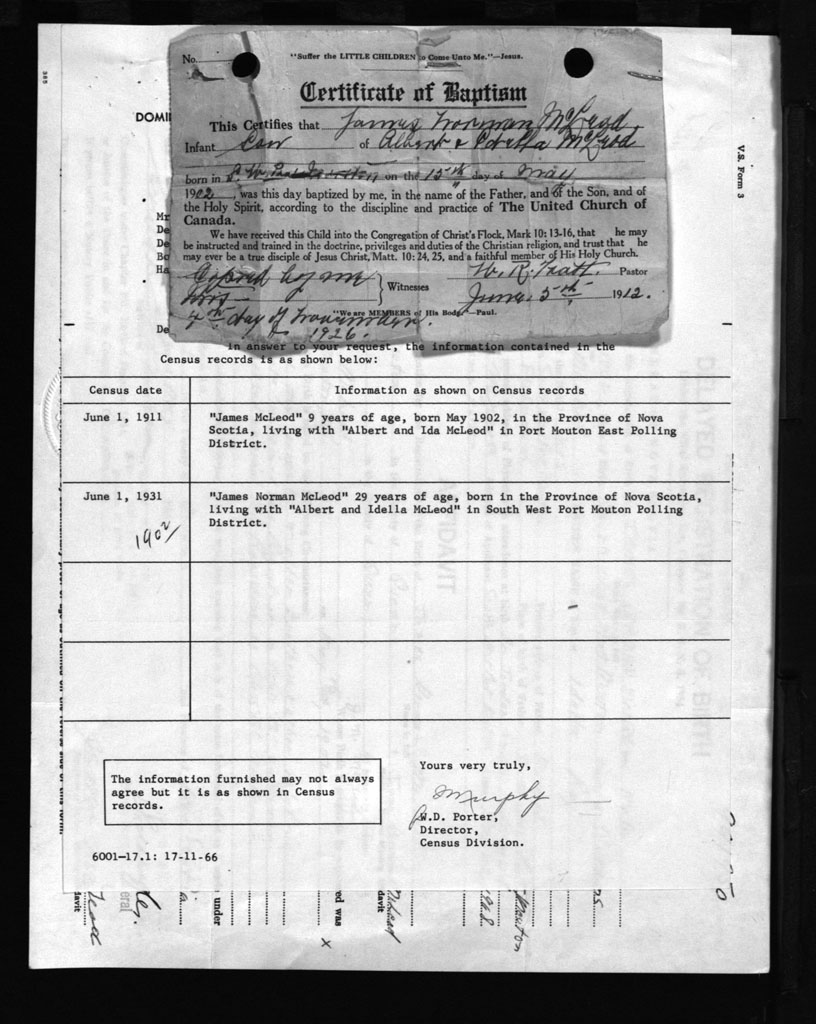 No.
"Suffer the LITTLE CHILDREN to Come Unto Me."—Jesus.
Certificate of Baptism
This Certifies that James Norman McLeod
Infant Son of Albert & Idella McLeod
born in on the 15th day of May
1902, was this day baptized by me, in the name of the Father, and of the Son, and of
the Holy Spirit, according to the discipline and practice of The United Church of
Canada.
We have received this Child into the Congregation of Christ's Flock, Mark 10: 13-16, that he may
be instructed and trained in the doctrine, privileges and duties of the Christian religion, and trust that he
may ever be a true disciple of Jesus Christ, Matt. 10: 24, 25, and a faithful member of His Holy Church.
Copied by me W. R. Pastor
this Witnesses June 5th 1912.
4th day of November. "We are MEMBERS of His Body."—Paul.
1926.
DOMI
V.S. Form 3
Mr
De
De
Bo
Ha
De
In answer to your request, the information contained in the
Census records is as shown below:
Census date Information as shown on Census records
June 1, 1911 "James McLeod" 9 years of age, born May 1902, in the Province of Nova
Scotia, living with "Albert and Ida McLeod" in Port Mouton East Polling
District.
June 1, 1931 "James Norman McLeod" 29 years of age, born in the Province of Nova Scotia,
living with "Albert and Idella McLeod" in South West Port Mouton Polling
District.
1902
The information furnished may not always
agree but it is as shown in Census
records.
Yours very truly,
Murphy
W.D. Porter,
Director,
Census Division.
6001-17.1: 17-11-66
davit
eral
under
ed was
x
davit
75